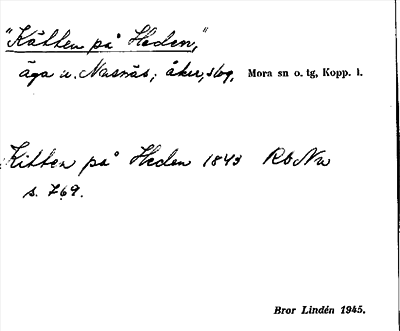 "Kätten på Heden,"
äga u. Nusnäs; åker, skog, Mora sn o. tg, Kopp. l.
Kitten på Heden 1843 Rb Nu
s. 769.
Bror Lindén 1945.